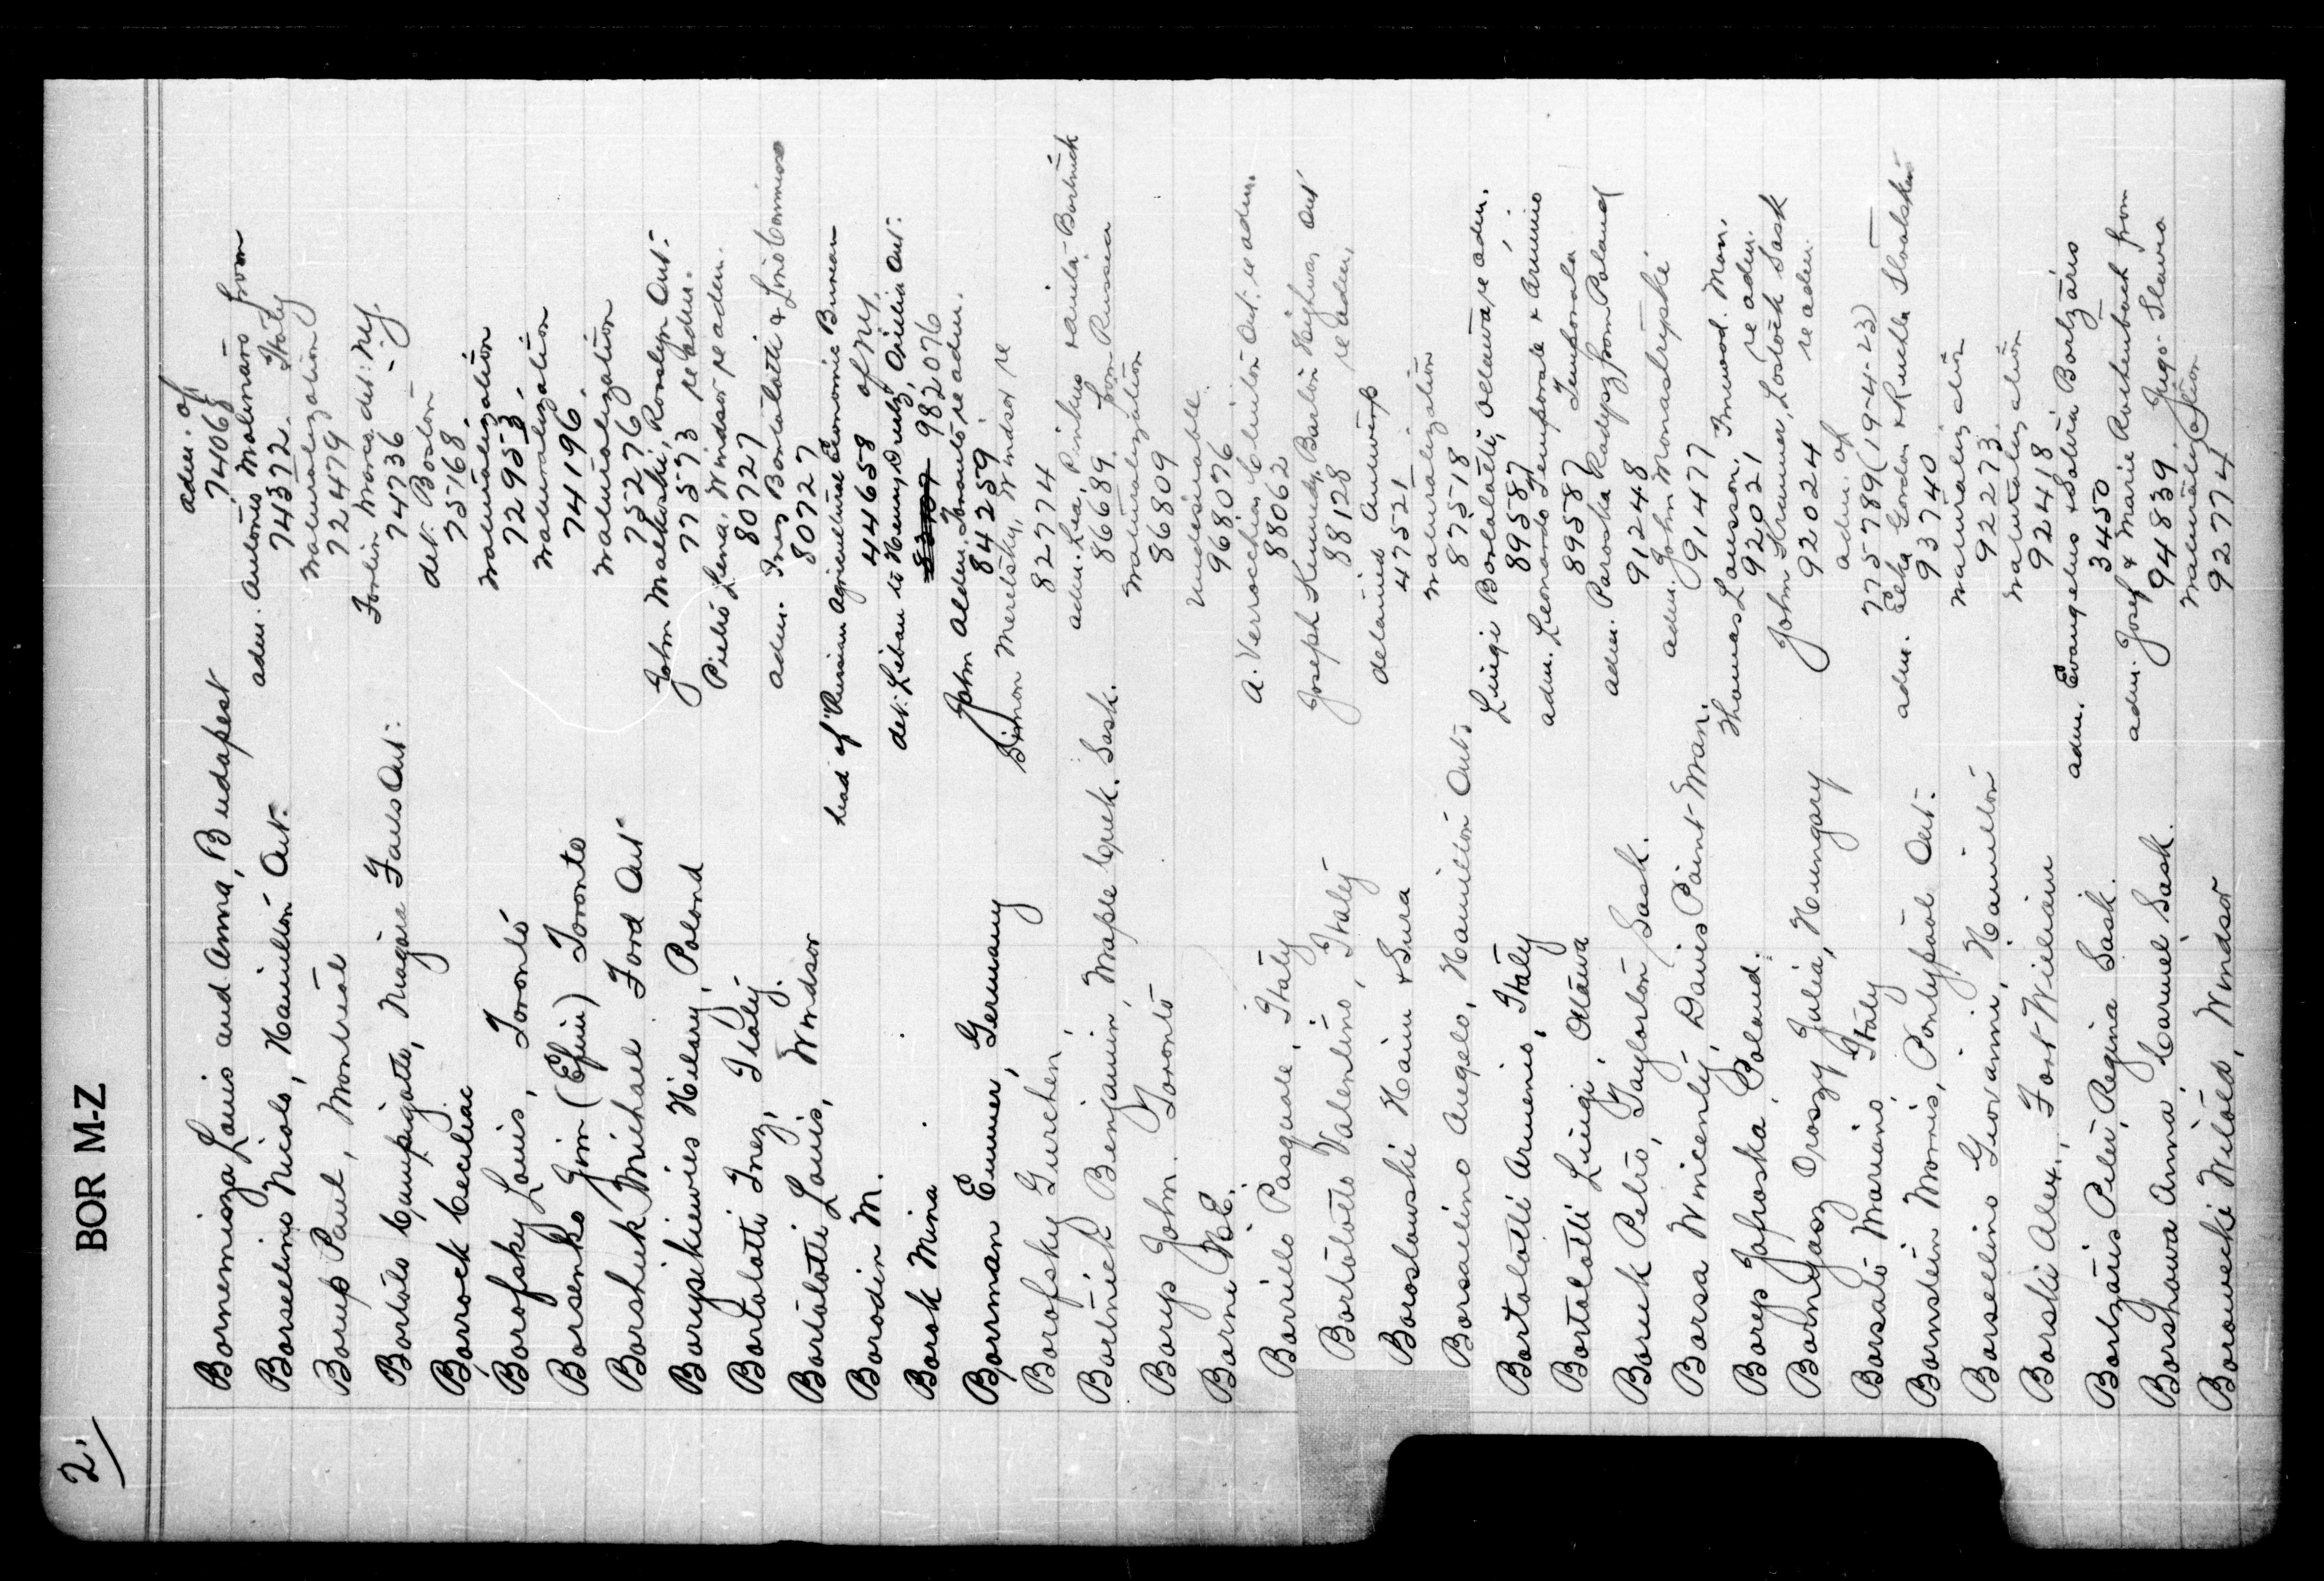 2.
BOR M-Z
Bornemisza Louis and Anna, Budapest adm. of 74068
Borselino Nicolo, Hamilton Ont. adm. Antonio Molinaro from Italy 74372.
Borup Paul, Montreal naturalization 72479
Bortolo Campigotto, Niagara Falls Ont. det. N.Y. 74736
Borrock Ceciliac det. Boston 75168
Borofsky Louis, Toronto naturalization 72953.
Borsenko Jim (Efim) Toronto naturalization 74196.
Borshuk Michael Ford Ont naturalization 75276
Boryskiewies Hilary, Poland John Malkoski, Rosslyn Ont. 77573 re adm.
Bortolotti Inez, Italy. Pietro Lena, Windsor re adm. 80727
Bortolotti Louis, Windsor adm. Inez Bortolotti & 80727
Borodin M. head of "Russian Agricultural Economic Bureau of N.Y. 44658
Borok Mina det. Libau to Henry Oreutz, Orillia Ont. 982076
Borrman Emmer, Germany John Alden Toronto re adm. 84259.
Borofsky Gurchen, Simon Meretsky, Windsor re 82774
Bortnick Benjamin, Maple Creek. Sask. adm. Lea, Pinkus & Bortnick from Russia 86689.
Borys John. Toronto naturalization 86809
Borni N.E. undesirable. 968076
Borrillo Pasquale, Italy A. Verrochia, Clinton Ont. re adm. 88062
Bortolotto Valentino, Italy Joseph Kennedy, Barton Highway Ont re adm. 88128
Boroslawski Haim & Sura detained Antwerp 47521
Borsailino Angelo, Hamilton Ont. naturalization 87518
Bortolotti Armenio, Italy Luigi Bortolotti, Ottawa, re adm. 89587
Bortolotti Luigi, Ottawa adm. Leonardo Temporale & Arminio Temporale 89587
Boruk Petro, Taylorton Sask. adm. Paroska Kadypz from Poland 91248
Borsa Wincenty, Davis Point Man. adm. John Monastrypski 91477
Borys Jafroska, Poland. Thomas Lawson, Inwood. Man. re adm. 92021
Bornyasz Oroszy Julia, Hungary John Kramer, Lostock Sask re adm. 92024
Borsato Mariano, Italy adm. of 775789 (19-4-23)
Bornstein Morris, Pontypool Ont. adm. Elka Gordon & Ruchla 93740
Borsellino Giovanni, Hamilton naturalization 92273.
Borski Alex., Fort William naturalization 92418
Bortzaris Peter, Regina Sask. adm. Evangelus & Sotiria Bortzaris 3450
Borshowa Anna, Carmel Sask. adm. Josef & Marie Rochenbach from Jugo-Slavia 94839.
Borowecki Witold, Windsor naturalization 92774